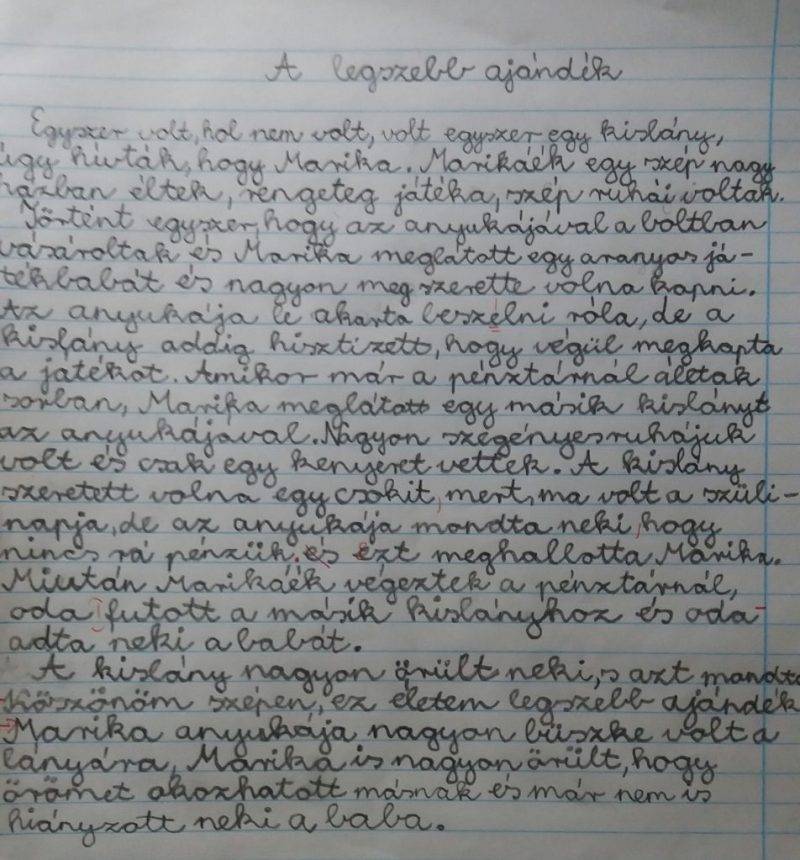 A legszebb ajándék
Egyszer volt, hol nem volt, volt egyszer egy kislány,
úgy hívták, hogy Marika. Marikáék egy szép nagy
házban éltek, rengeteg játéka, szép ruhái voltak.
Történt egyszer, hogy az anyukájával a boltban
vásároltak és Marika meglátott egy aranyos já-
tékbabát és nagyon megszerette volna kapni.
Az anyukája le akarta beszélni róla, de a
kislány addig hisztizett, hogy végül megkapta
a játékot. Amikor már a pénztárnál álltak
sorban, Marika meglátott egy másik kislányt
az anyukájával. Nagyon szegényes ruhájuk
volt és csak egy kenyeret vettek. A kislány
szeretett volna egy csokit, mert, ma volt a szüli-
napja, de az anyukája mondta neki, hogy
nincs rá pénzük. és Ezt meghallotta Marika.
Miután Marikáék végeztek a pénztárnál,
oda futott a másik kislányhoz és oda-
adta neki a babát.
A kislány nagyon örült neki, s azt mondta
-Köszönöm szépen, ez életem legszebb ajándék
-Marika anyukája nagyon büszke volt a
lányára, Marika is nagyon örült, hogy
örömet okozhatott másnak és már nem is
hiányzott neki a baba.